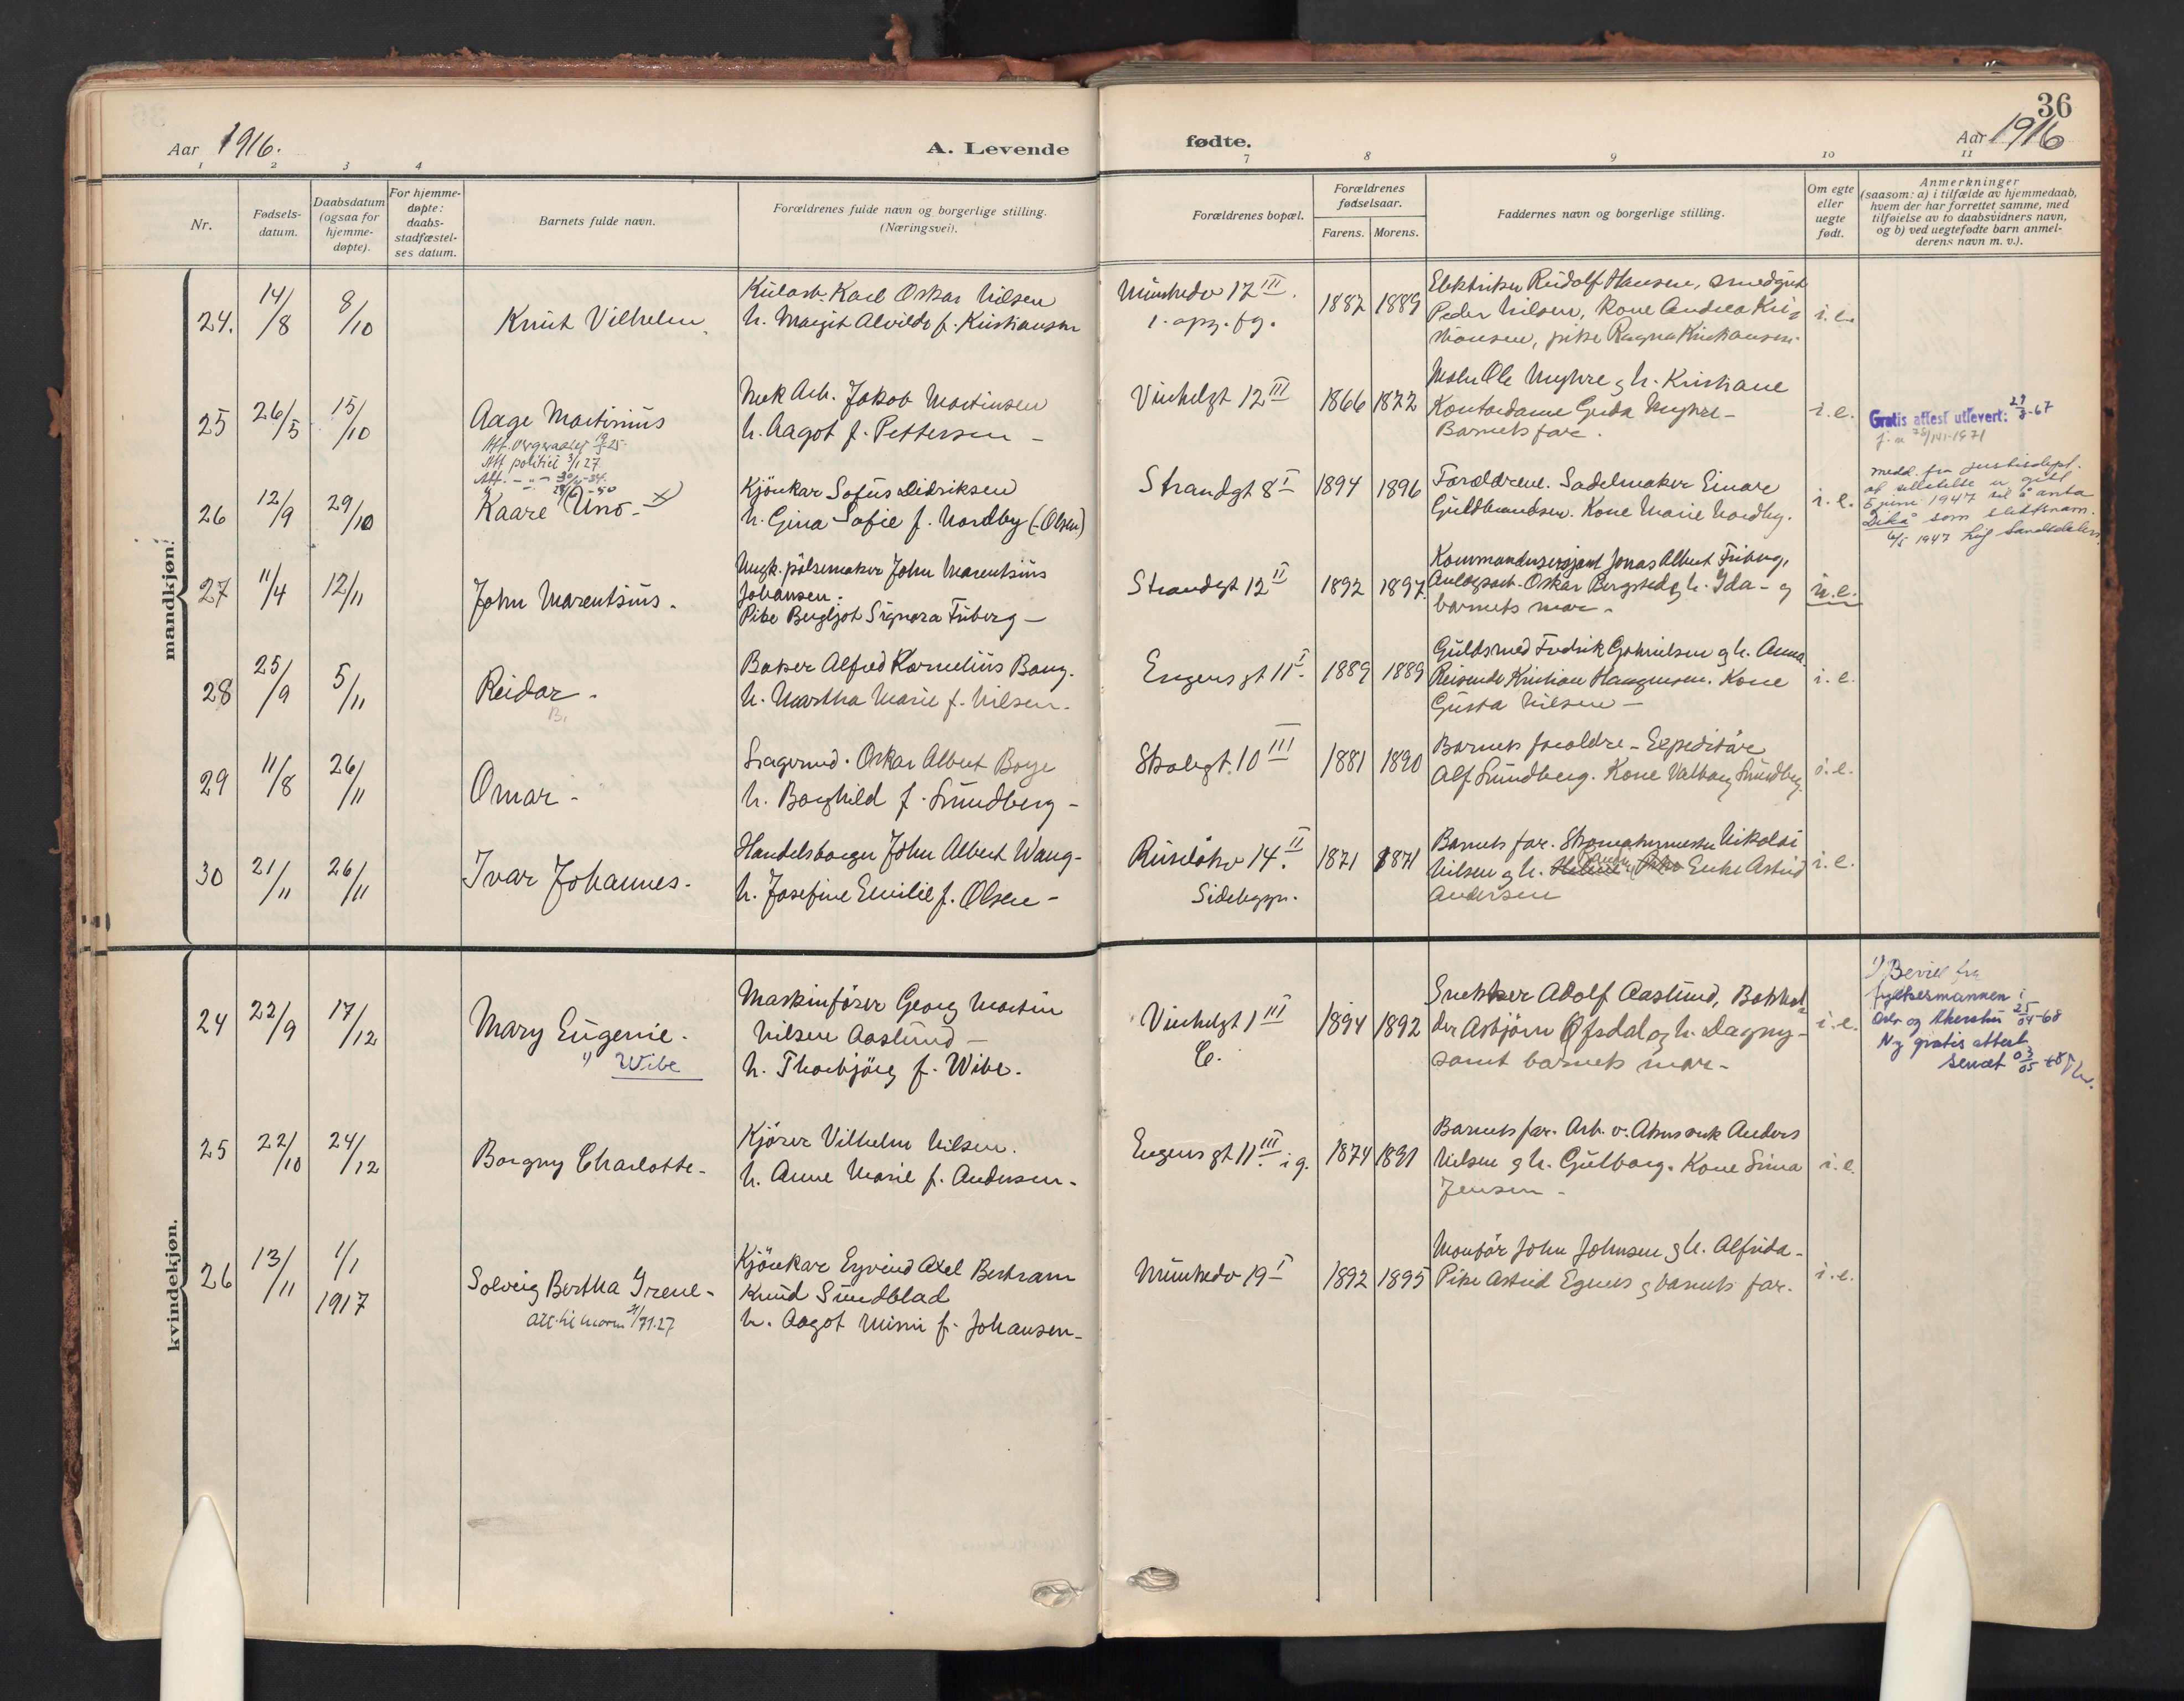 36
Aar 1916.
A. Levende
fødte.
Aar 1916
1 2 3 4 7 8 9 10 11
Nr.
Fødsels-
datum.
Daabsdatum
(ogsaa for
hjemme-
døpte).
For hjemme-
døpte:
daabs-
stadfæstel-
ses datum.
Barnets fulde navn.
Forældrenes fulde navn og borgerlige stilling.
(Næringsvei).
Forældrenes bopæl.
Forældrenes
fødselsaar.
Farens. Morens.
Faddernes navn og borgerlige stilling.
Om egte
eller
uegte
født.
Anmerkninger
(saasom: a) i tilfælde av hjemmedaab,
hvem der har forrettet samme, med
tilføielse av to daabsvidners navn,
og b) ved uegtefødte barn anmel-
derens navn m. v.).
mandkjøn.
24. 14/8 8/10
Knut Vilhelm.
Kularb. Karl Oskar Nilsen
h. Margit Alvilde f. Kristiansen
Munkedv 12 III.
1. opg. fg.
1882 1889
Elektriker Rudolf Hansen, smedgut
Peder Nilsen, Kone Andrea Kri-
stiansen, pike Ragna Kristiansen.
i. e.
25 26/5 15/10
Aage Martinius
Att. politiet 3/1 27
Mek Arb. Jakob Martinsen
h. Aagot f. Pettersen -
Vinkelgt 12 III
1866 1872
Ole Myhre g h. Kristiane
Kontordame Gerda Myhre -
Barnets far.
i. e.
Gratis attest utlevert: 29/3-67
26 12/9 29/10
Kaare Uno - x)
Kjörekar Sofus Didriksen
h. Gina Sofie f. Nordby (-Olsen)
Strandgt 8 I
1894 1896
Forældrene. Sadelmaker Einar
Guldbrandsen. Kone Marie Nordby.
i. e.
Medd. fra Justisdept.
5 juni 1947 til å anta
som slektsnavn.
6/5 1947
27 11/4 12/11
John Marentsius.
Ungk. pölsemaker John Marentsius
Johansen.
Pike Bergljot Signora Friberg -
Strandgt 12 II
1892 1897.
Kommandersergjant Jonas Albert Friberg,
Anlægsarb. Oskar Bergsted g h. Ida - og
barnets mor -
u. e.
28 25/9 5/11
Reidar -
Baker Alfred Kornelius Bang.
h. Martha Marie f. Nilsen -
Engens gt 11 I.
1889 1889
Guldsmed Fredrik Gabrielsen g h. Anna
Reisende Kristian Haagensen. Kone
Gusta Nilsen -
i. e.
29 11/8 26/11
Omar -
Lagermd. Oskar Albert Boye
h. Borghild f. Sundberg -
Skolegt. 10 III
1881 1890
Barnets foreldre - Expeditör
Alf Sundberg. Kone Valborg Sundberg.
i. e.
30 21/11 26/11
Ivar Johannes.
Handelsborger John Albert Wang -
h. Josefine Emilie f. Olsen -
Ruselökv 14 II.
Sidebygn.
1871 1871
Barnets far. Skomakermester Nikolai
Nilsen g h. Enke Astrid
Andersen
i. e.
kvindekjøn.
24 22/9 17/12
Mary Eugenie.
1) Wibe
Maskinfører Georg Martin
Nilsen Aaslund -
h. Thorbjörg f. Wibe.
Vinkelgt 1 III
C.
1894 1892
Snekker Adolf Aaslund, Bokhol-
der Asbjörn Øfsdal og h. Dagny -
samt barnets mor -
i. e.
1) Bevill fra
fylkesmannen i
Oslo og Akershus 25/04-68
Ny gratis attest
sendt 03/05 68
25 22/10 24/12
Borgny Charlotte -
Kjörer Vilhelm Nilsen.
h. Anne Marie f. Andersen -
Engens gt 11 III. i g.
1874 1891
Barnets far. Arb. v. Akers mek Anders
Nilsen g h. Gulborg. Kone Lina
Jensen -
i. e.
26 13/11 1/1
1917
Solveig Bertha Irene -
Kjörekar Eyvind Axel Bertram
Knud Sundblad
h. Aagot Mimi f. Johansen -
Munkedv 19 I
1892 1895
Montör John Johnsen g h. Alfrida -
Pike Astrid Egenes g barnets far.
i. e.